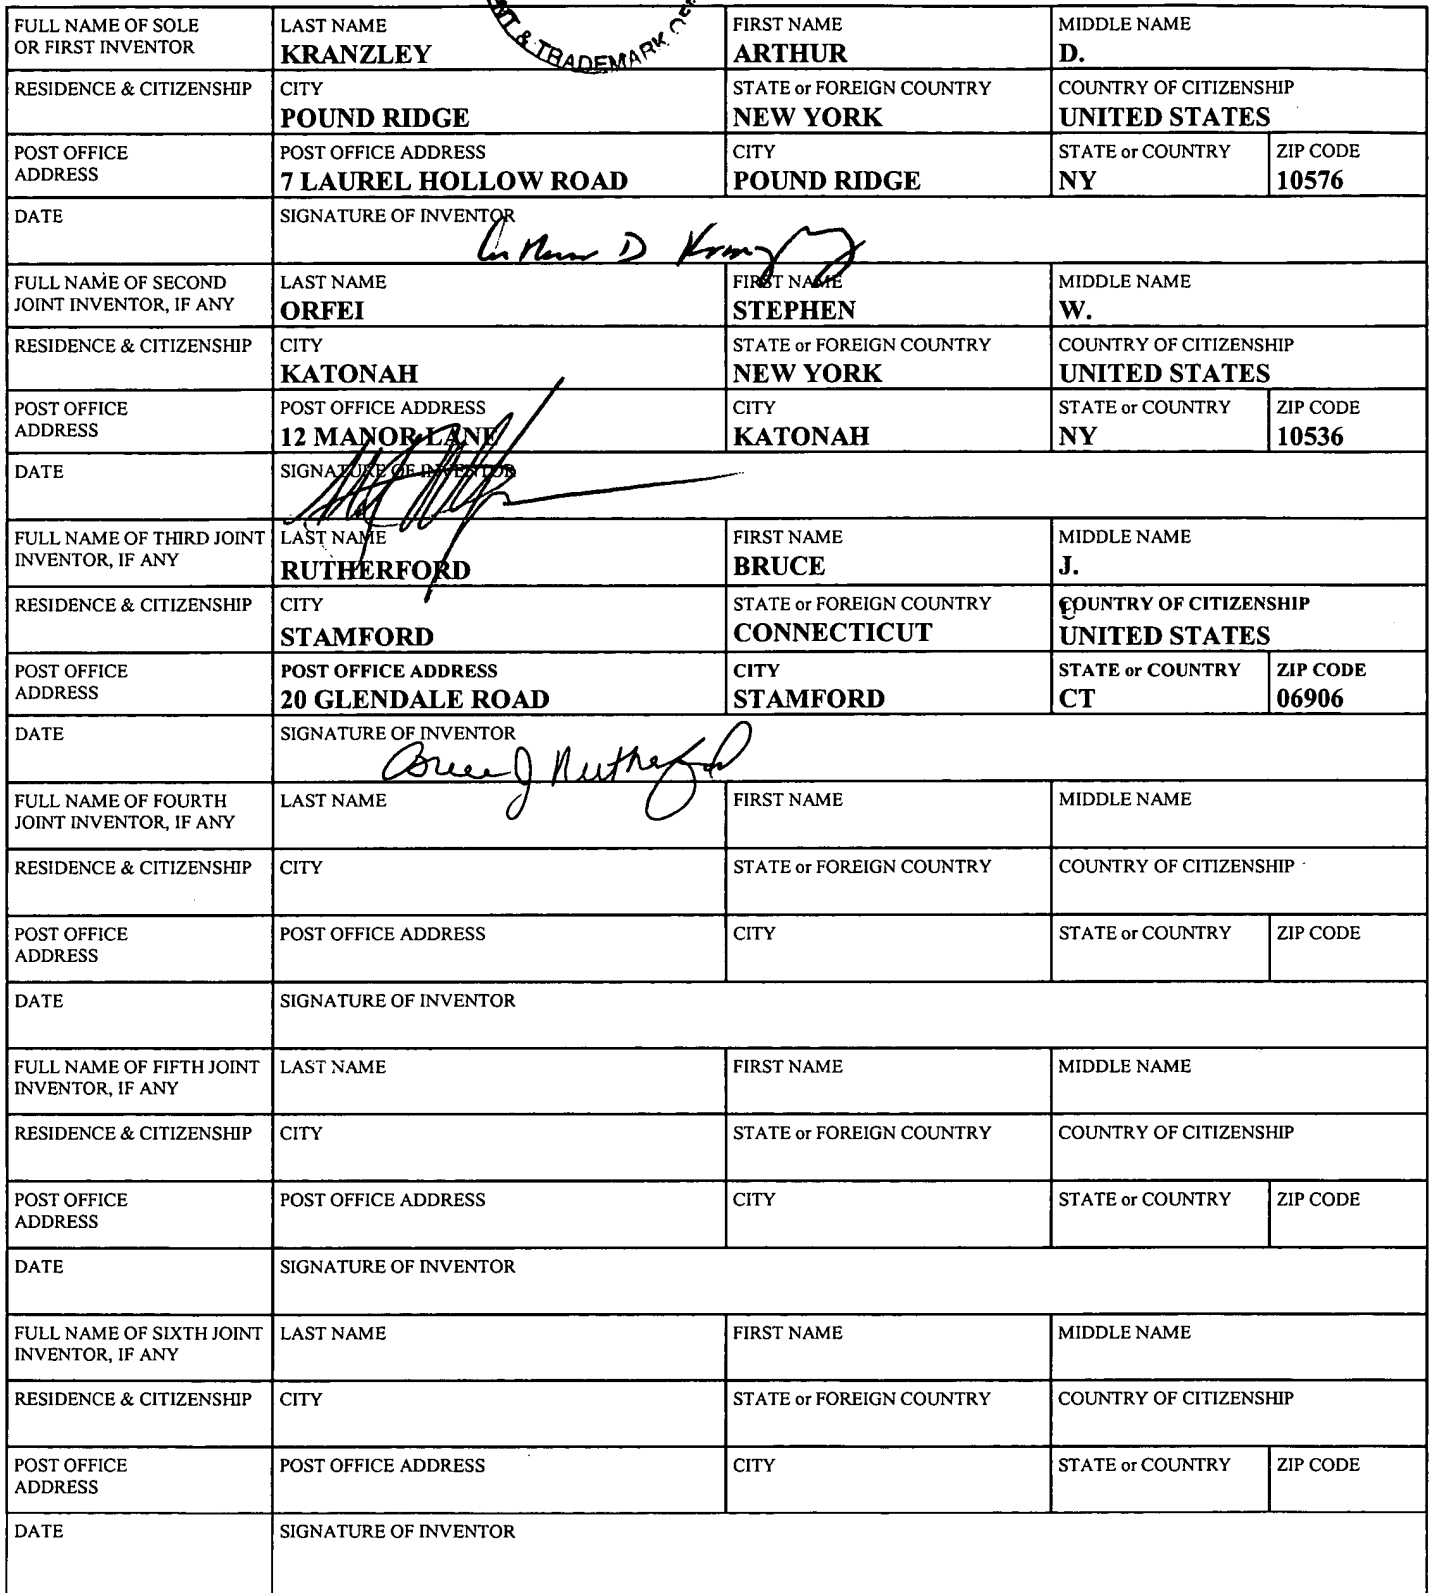 NT & TRADEMARK OF
FULL NAME OF SOLE OR FIRST INVENTOR
LAST NAME
KRANZLEY
FIRST NAME
ARTHUR
MIDDLE NAME
D.
RESIDENCE & CITIZENSHIP
CITY
POUND RIDGE
STATE or FOREIGN COUNTRY
NEW YORK
COUNTRY OF CITIZENSHIP
UNITED STATES
POST OFFICE ADDRESS
POST OFFICE ADDRESS
7 LAUREL HOLLOW ROAD
CITY
POUND RIDGE
STATE or COUNTRY
NY
ZIP CODE
10576
DATE
SIGNATURE OF INVENTOR
FULL NAME OF SECOND JOINT INVENTOR, IF ANY
LAST NAME
ORFEI
FIRST NAME
STEPHEN
MIDDLE NAME
W.
RESIDENCE & CITIZENSHIP
CITY
KATONAH
STATE or FOREIGN COUNTRY
NEW YORK
COUNTRY OF CITIZENSHIP
UNITED STATES
POST OFFICE ADDRESS
POST OFFICE ADDRESS
12 MANOR LANE
CITY
KATONAH
STATE or COUNTRY
NY
ZIP CODE
10536
DATE
SIGNATURE OF INVENTOR
FULL NAME OF THIRD JOINT INVENTOR, IF ANY
LAST NAME
RUTHERFORD
FIRST NAME
BRUCE
MIDDLE NAME
J.
RESIDENCE & CITIZENSHIP
CITY
STAMFORD
STATE or FOREIGN COUNTRY
CONNECTICUT
COUNTRY OF CITIZENSHIP
UNITED STATES
POST OFFICE ADDRESS
POST OFFICE ADDRESS
20 GLENDALE ROAD
CITY
STAMFORD
STATE or COUNTRY
CT
ZIP CODE
06906
DATE
SIGNATURE OF INVENTOR
Bruce J Rutherford
FULL NAME OF FOURTH JOINT INVENTOR, IF ANY
LAST NAME
FIRST NAME
MIDDLE NAME
RESIDENCE & CITIZENSHIP
CITY
STATE or FOREIGN COUNTRY
COUNTRY OF CITIZENSHIP
POST OFFICE ADDRESS
POST OFFICE ADDRESS
CITY
STATE or COUNTRY
ZIP CODE
DATE
SIGNATURE OF INVENTOR
FULL NAME OF FIFTH JOINT INVENTOR, IF ANY
LAST NAME
FIRST NAME
MIDDLE NAME
RESIDENCE & CITIZENSHIP
CITY
STATE or FOREIGN COUNTRY
COUNTRY OF CITIZENSHIP
POST OFFICE ADDRESS
POST OFFICE ADDRESS
CITY
STATE or COUNTRY
ZIP CODE
DATE
SIGNATURE OF INVENTOR
FULL NAME OF SIXTH JOINT INVENTOR, IF ANY
LAST NAME
FIRST NAME
MIDDLE NAME
RESIDENCE & CITIZENSHIP
CITY
STATE or FOREIGN COUNTRY
COUNTRY OF CITIZENSHIP
POST OFFICE ADDRESS
POST OFFICE ADDRESS
CITY
STATE or COUNTRY
ZIP CODE
DATE
SIGNATURE OF INVENTOR